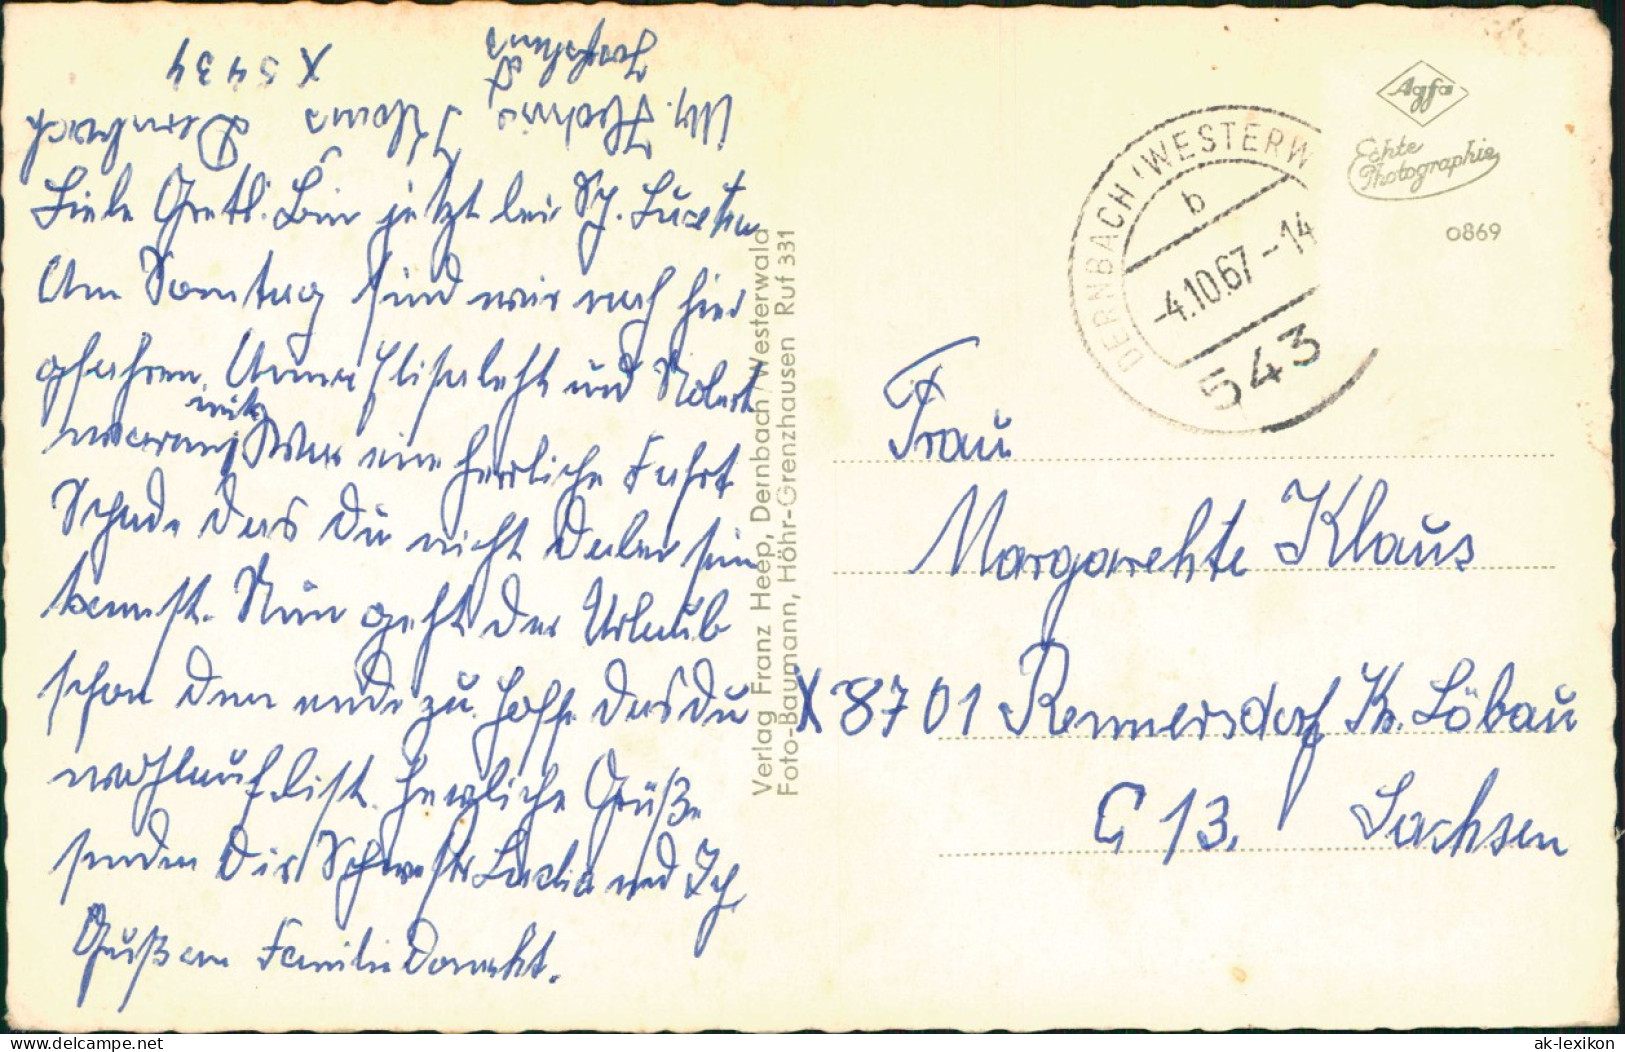 X 5434
Dernbach
Liebe Gretl. Bin jetzt bei
Am Sonntag sind wir nach hier
gefahren. Anna Elisabeht und Robert
waren mit War eine herrliche Fahrt
Schade das Du nicht dabei sein
kannst. Nun geht der Urlaub
schon dem ende zu. Hoffe das Du
wohlauf bist. Herzliche Grüße
senden Dir Schwester Lucia und Ich.
Gruß an Familie
Verlag Franz Heep, Dernbach/Westerwald
Foto-Baumann, Höhr-Grenzhausen Ruf 331
DERNBACH (WESTERW
b
-4.10.67-14
543
Agfa
Echte
Photographie
0869
Frau
Margarehte Klaus
X 8701 Rennersdorf Kr. Löbau
C 13. Sachsen
www.delcampe.net
ak-lexikon